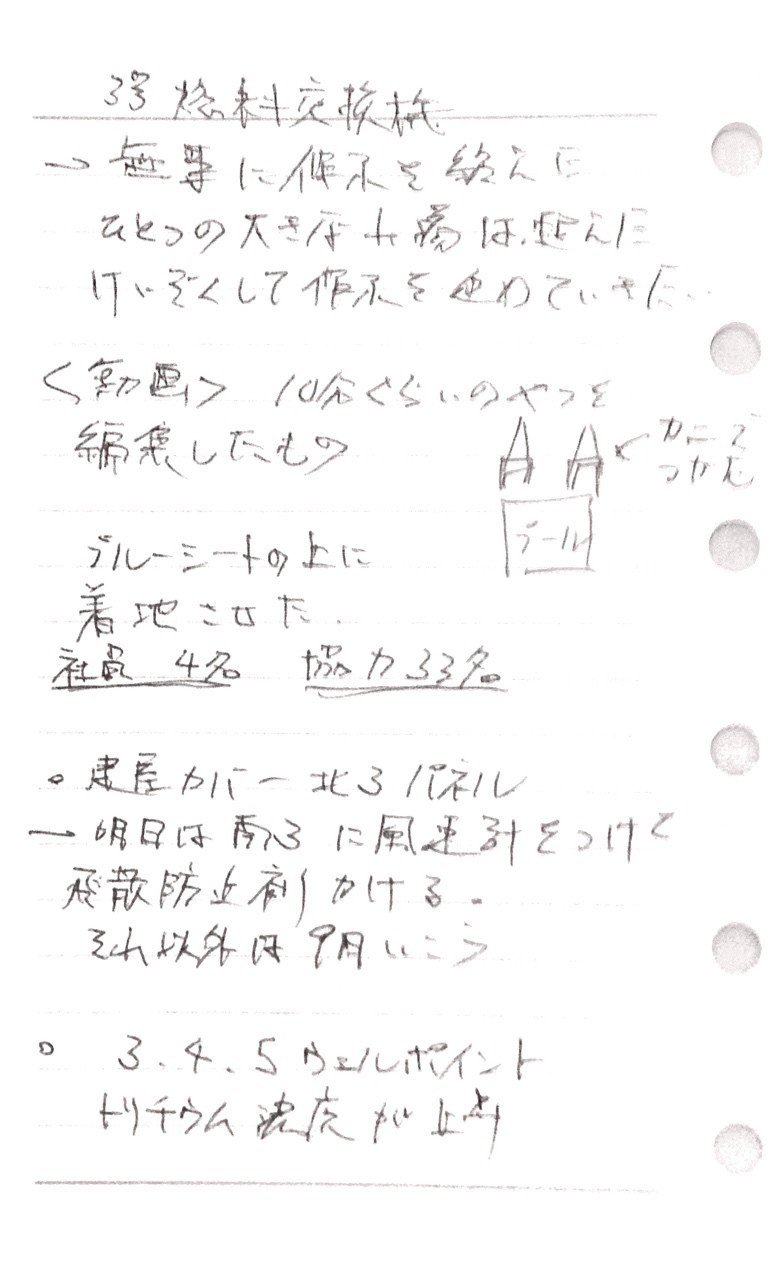 3号 燃料交換機
→ 無事に作業を終えた
ひとつの大きな山場は、越えた
けいぞくして作業を進めていきたい..
<動画> 10分ぐらいのやつを
編集したもの
カニで
つかむ
プール
ブルーシートの上に
着地させた.
社員 4名 協力 33名。
。建屋カバー 北3パネル
→ 明日は南3に風速計をつけて
飛散防止剤かける。
それ以外は9月いこう
。 3.4.5 ウェルポイント
トリチウム濃度が上昇